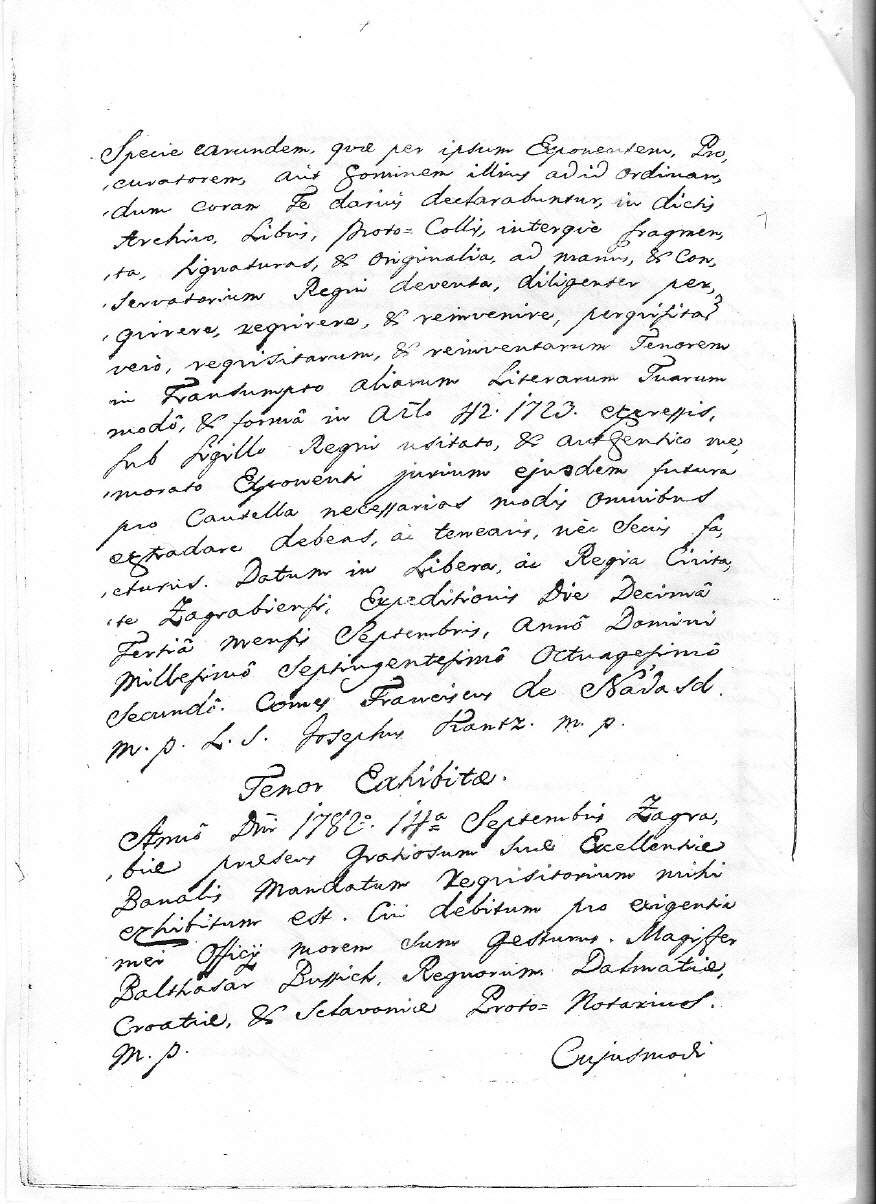 Specie earundem, quæ per ipsum Exponentem, Pro,
,curatorem, aut Hominem illius ad id ordinan,
,dum coram Te darius declarabuntur, in dictis
Archivo, Libris, Proto=Collis, interque fragmen,
,ta, Signaturas, & Originalia, ad manus, & Con,
,servatorium Regni deventa, diligenter per,
,quirere, requirere, & reinvenire, perquisitar
vero, requisitarum, & reinventarum Tenorem
in Transumpto aliarum Literarum Tuarum
modô, & formâ in Arlo 42. 1723. expressis,
sub Sigillo Regni usitato, & authentico me,
,morato Exponenti jurium ejusdem futura
pro Cautella necessarias modis omnibus
extradare debeas, ac tenearis, nec secus fa,
,cturus. Datum in Libera, ac Regia Civita,
,te Zagrabiensi, Expeditionis Die Decimâ
Tertiâ mensis Septembris, Annô Domini
Millesimô Septingentesimô Octuagesimô
Secundô. Comes Franciscus de Nádasd.
m. p. L. S. Josephus Krantz. m. p.
Tenor Exhibitæ.
Annô Dni 1782º. 14ª Septembris Zagra,
,biæ præsens Gratiosum suæ Excellentiæ
Banalis Mandatum Requisitorium mihi
exhibitum est. Cui debitum pro exigentia
mei Officij morem sum gesturus. Magister
Balthasar Bussich, Regnorum Dalmatiæ,
Croatiæ, & Sclavoniæ Proto=Notarius.
m. p.
Cujusmodi